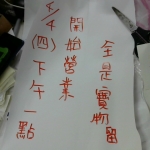 8/4
(四)下午一點
開始營業
全是實物留